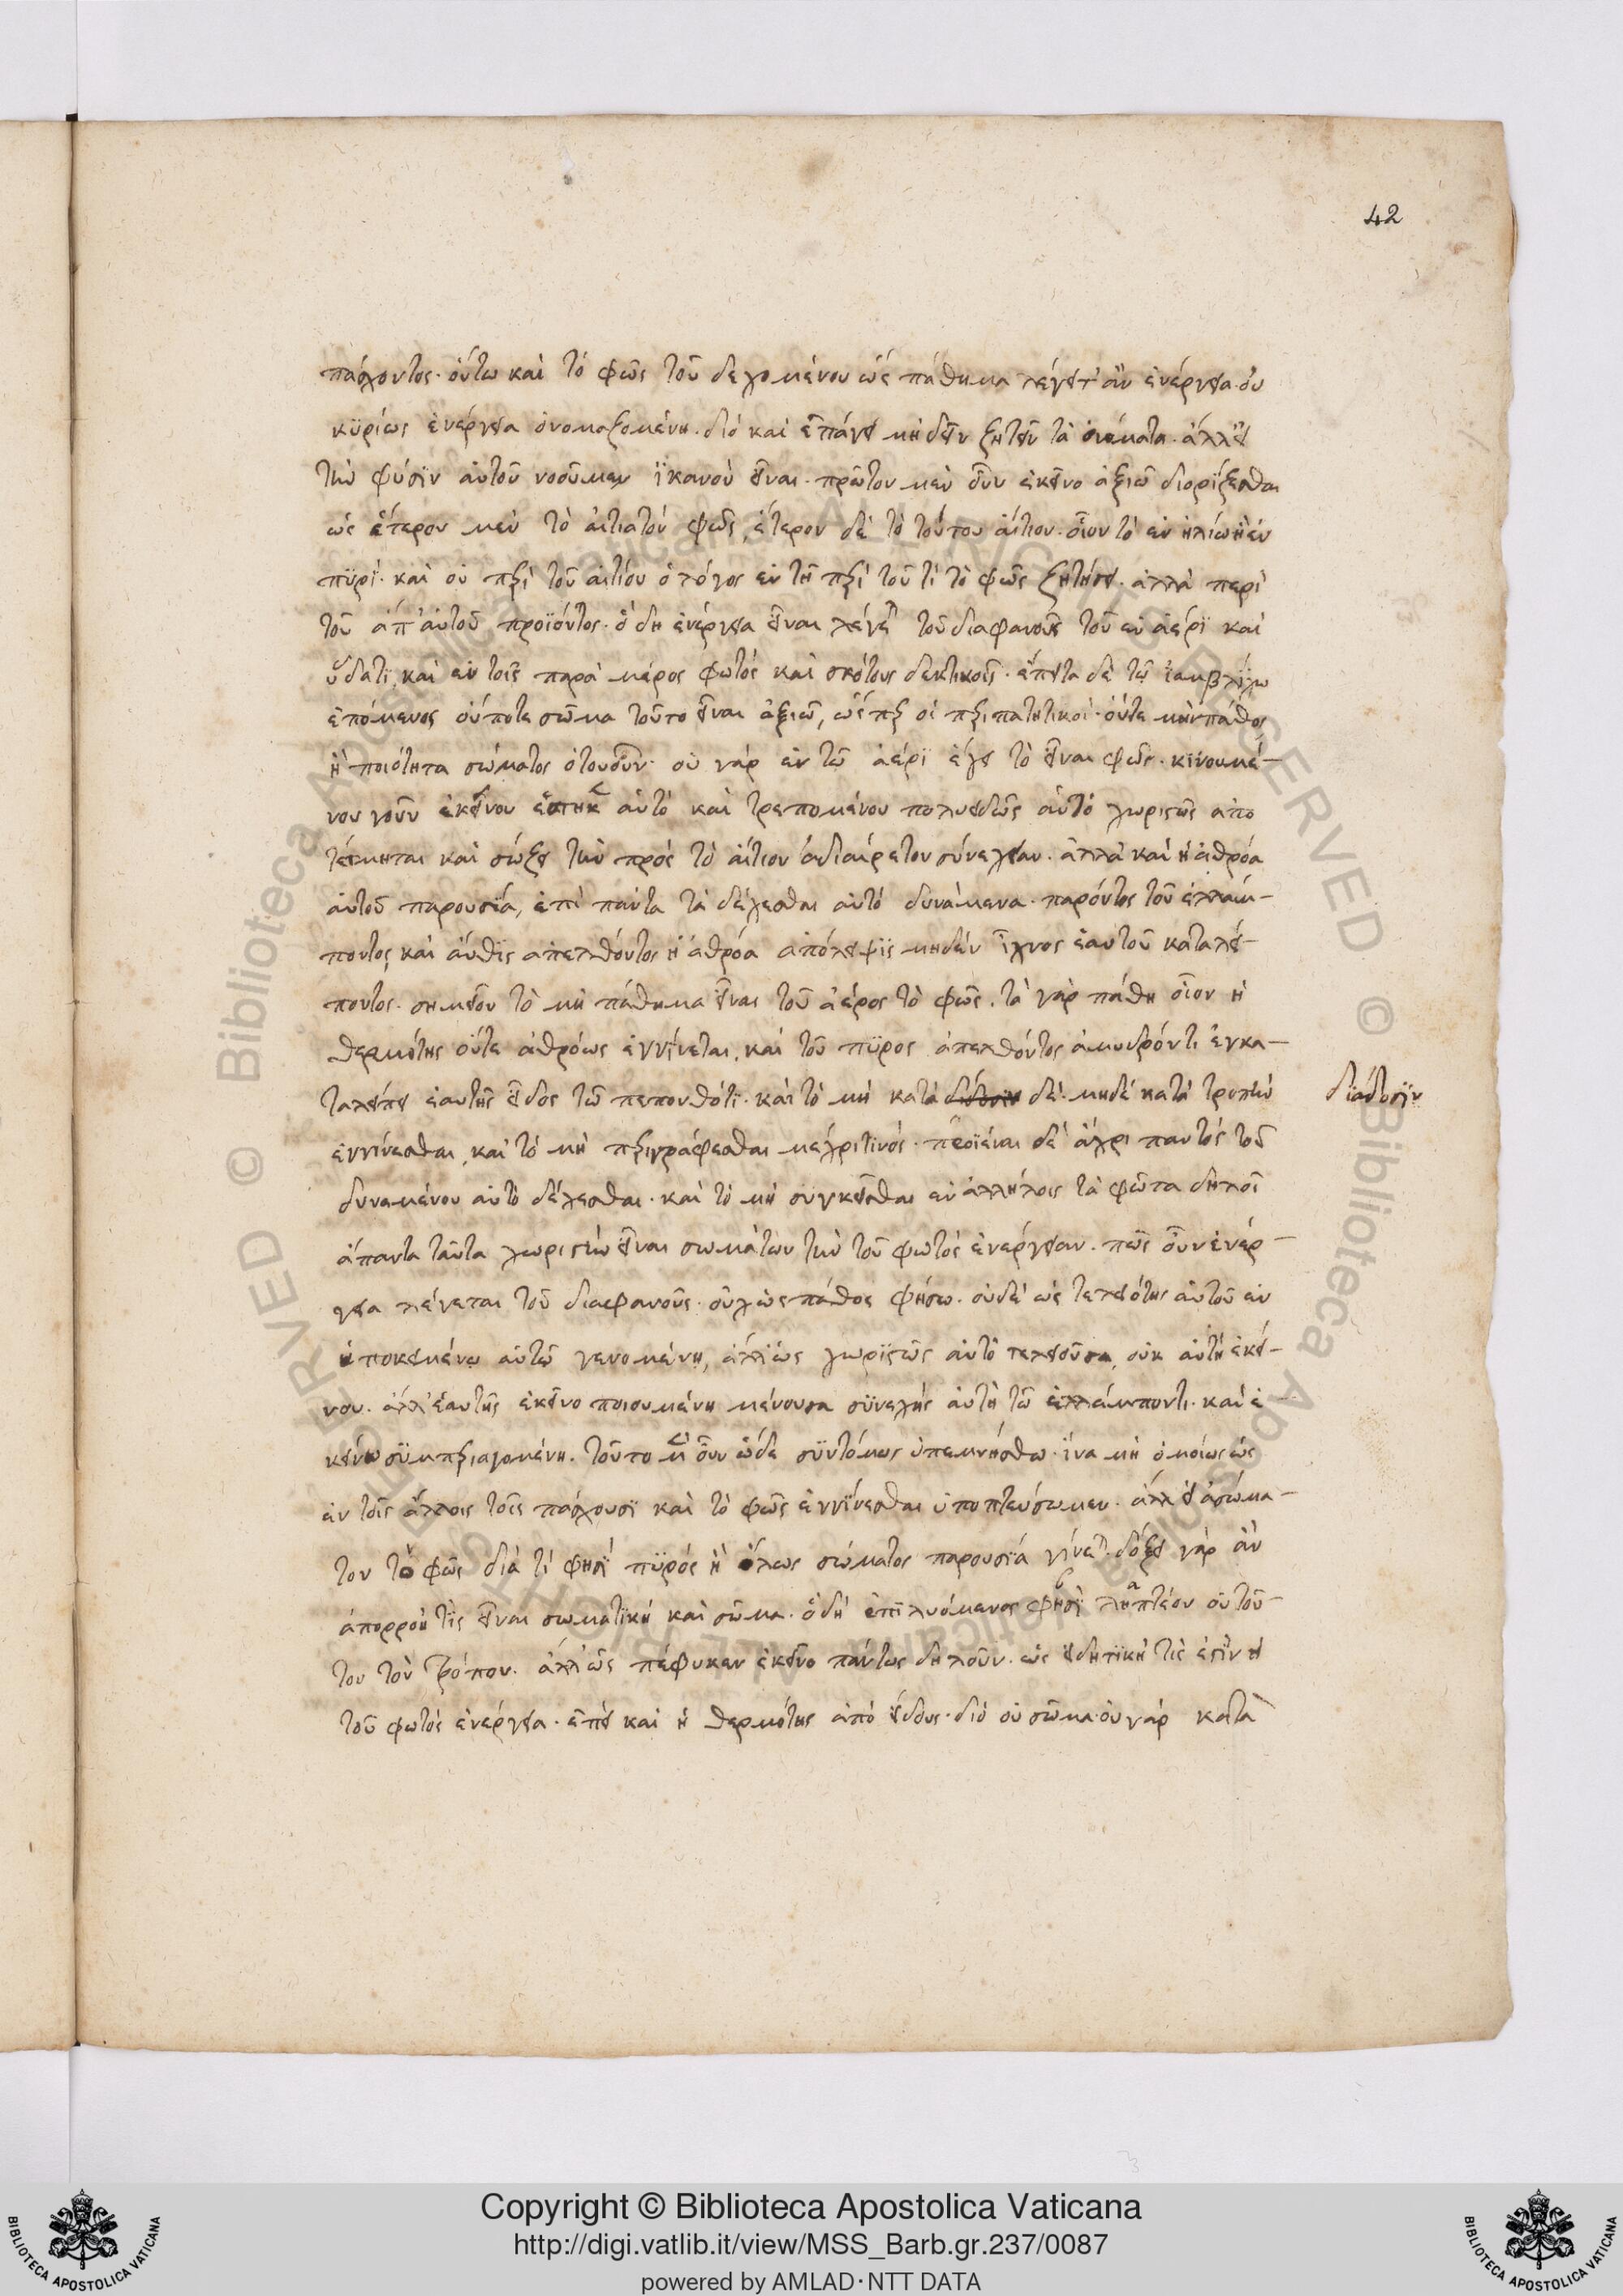 42
πάσχοντος· οὕτω καὶ τὸ φῶς τοῦ δεχομένου ὡς πάθημα λέγετ' ἂν ἐνέργεια· οὐ
κϋρίως ἐνέργεια ὀνομαζομένη. διὸ καὶ ἐπάγει μηδὲν ζητεῖν τὰ ὀνόματα. ἀλλ' εἰ
τὴν φύσϊν αὐτοῦ νοοῦμεν ϊκανοὺ εἶναι. πρῶτον μὲν οὖν ἐκεῖνο ἀξιῶ διορίζεσθαι
ὡς ἕτερον μὲν τὸ αἰτιατὸν φῶς, ἕτερον δὲ τὸ τούτου αἴτιον. οἷον τὸ ἐν ἡλίω ἢ ἐν
πϋρΐ. καὶ οὐ πρὶ τοῦ αἰτίου ὁ λόγος ἐν τῆ πρὶ τοῦ τί τὸ φῶς ζητήσει. ἀλλὰ περὶ
τοῦ ἀπ' αὐτοῦ προϊόντος. ὃ δὴ ἐνέργεια εἶναι λέγετ τοῦ διαφανοῦς τοῦ ἐν ἀέρϊ καὶ
ὕδατϊ, καὶ ἐν τοῖς παρὰ μέρος φωτὸς καὶ σκότους δεκτικοῖς. ἔπειτα δὲ τῶ ἰαμβλίχω
ἑπόμενος οὔποτε σῶμα τοῦτο εἶναι ἀξιῶ, ὥσπρ οἱ πριπατητικοί. οὔτε μὴν πάθος
ἢ ποιότητα σώματος ὁτουοῦν. οὐ γὰρ ἐν τῶ ἀέρϊ ἔχει τὸ εἶναι φῶς. κϊνουμέ-
νου γοῦν ἐκείνου ἕστηκε αὐτὸ καὶ τρεπομένου πολυειδῶς αὐτὸ χωριστῶς ἀπο
τέτμηται καὶ σώζει τὴν πρὸς τὸ αἴτιον ἀδιαίρετον σύνεχειαν. ἀλλὰ καὶ ἡ ἀθρόα
αὐτοῦ παρουσΐα, ἐπὶ πάντα τὰ δέχεσθαι αὐτὸ δυνάμενα. παρόντος τοῦ ἐλλάμ-
ποντος, καὶ αὖθϊς ἀπελθόντος ἡ ἀθρόα ἀπόλειψϊς μηδὲν ἴχνος ἑαυτοῦ καταλεί-
ποντος. σημεῖον τὸ μὴ πάθημα εἶναι τοῦ ἀέρος τὸ φῶς. τὰ γὰρ πάθη οἷον ἡ
θερμότης οὔτε ἀθρόως ἐγγίνεται. καὶ τοῦ πϋρὸς ἀπελθόντος ἀμυδρόν τι ἐγκα-
ταλείπει ἑαυτῆς εἶδος τῶ πεπονθότϊ. καὶ τὸ μὴ κατὰ δίδοσιν δὲ. μηδὲ κατὰ τροπὴν
διάδοσϊν
ἐγγίνεσθαι, καὶ τὸ μὴ πριγράφεσθαι μέχρι τϊνός. προϊέναι δὲ ἄχρι παντὸς τοῦ
δυναμένου αὐτὸ δέχεσθαι. καὶ τὸ μὴ συγκεῖσθαι ἐν ἀλλήλοις τὰ φῶτα δηλοῖ
ἅπαντα ταῦτα χωριστὴν εἶναι σωμάτων τὴν τοῦ φωτὸς ἐνέργειαν. πῶς οὖν ἐνέρ-
γεια λέγεται τοῦ διαφανοῦς. οὐχ ὡς πάθος φήσω. οὐδὲ ὡς τελειότης αὐτοῦ ἐν
ὑποκειμένω αὐτῶ γενομένη, ἀλλ' ὡς χωρϊστῶς αὐτὸ τελειοῦσα, οὐκ αὐτὴ ἐκεί-
νου. ἀλλ' ἑαυτῆς ἐκεῖνο ποιουμένη μένουσα σϋνεχὴς αὐτὴ τῶ ἐλλάμποντι. καὶ ἐ-
κείνω σϋμπριαγομένη. τοῦτο μὲν οὖν ὧδε σϋντόμως ὑπεμνήσθω. ἵνα μὴ ὁμοίως ὡς
ἐν τοῖς ἄλλοις τοῖς πάσχουσϊ καὶ τὸ φῶς ἐγγΐνεσθαι ὑποπτεύσωμεν. ἀλλ' εἰ ἀσώμα-
τον τὸ φῶς διὰ τί φησΐ πϋρὸς ἢ ὅλως σώματος παρουσΐα γίνετ. δόξει γὰρ ἂν
ἀπορροή τϊς εἶναι σωματϊκὴ καὶ σῶμα. ὃ δὴ ἐπϊλυόμενος φησϊ ληπτέον οὐ τοῦ-
τον τὸν τρόπον. ἀλλ' ὡς πέφυκεν ἐκεῖνο πάντως δηλοῦν. ὡς εἰδητϊκή τϊς ἐστΐν ἡ
τοῦ φωτὸς ἐνέργεια. ἐπεὶ καὶ ἡ θερμότης ἀπὸ εἴδους. διὸ οὐ σῶμα. οὐ γὰρ κατὰ
Copyright © Biblioteca Apostolica Vaticana
http://digi.vatlib.it/view/MSS_Barb.gr.237/0087
powered by AMLAD·NTT DATA